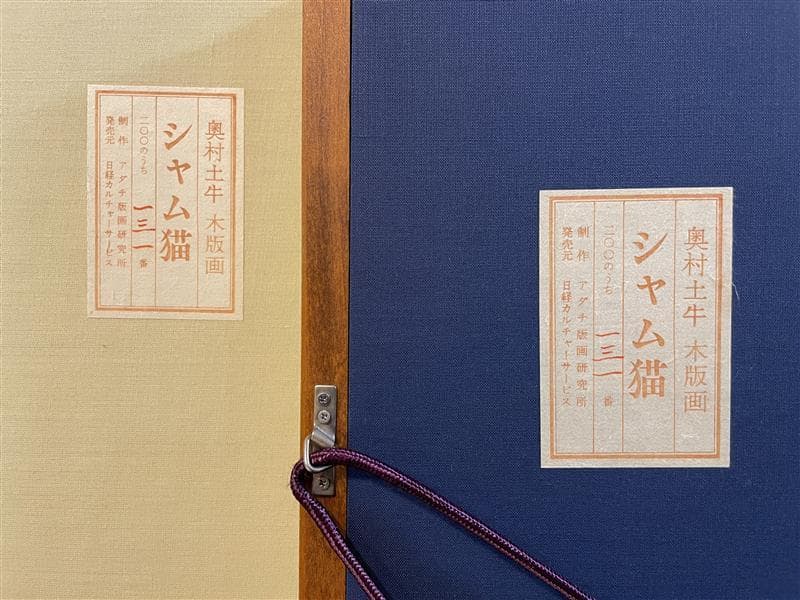 奥村土牛 木版画
シャム猫
二〇〇のうち 一三一 番
制作 アダチ版画研究所
発売元 日経カルチャーサービス
奥村土牛 木版画
シャム猫
二〇〇のうち 一三一 番
制作 アダチ版画研究所
発売元 日経カルチャーサービス